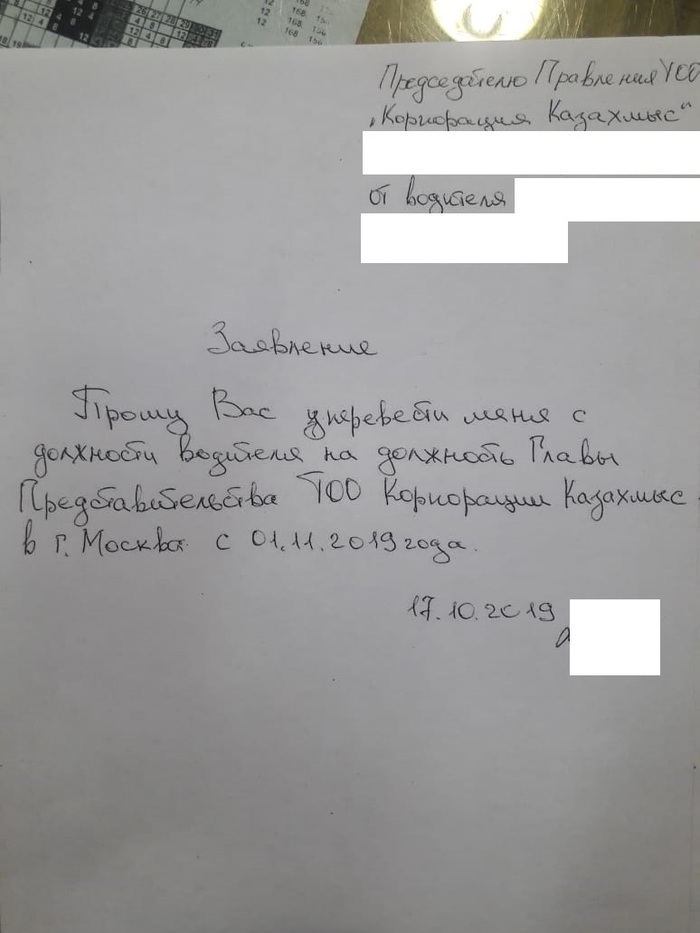 Председателю Правления ТОО
"Корпорация Казахмыс"
от водителя
Заявление
Прошу Вас перевести меня с
должности водителя на должность Главы
Представительства ТОО Корпорации Казахмыс
в г. Москва с 01.11.2019 года.
17.10.2019